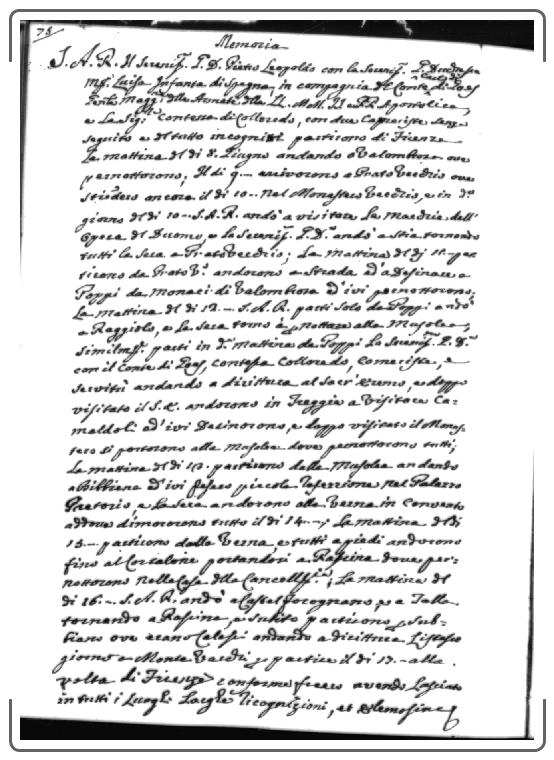 78
Memoria
S. A. R. Il Sereniss. P. D. Pietro Leopoldo con la Sereniss. P. Duchessa
M.ss. Luisa Infanta di Spagna, in compagnia del Conte di
Magg. delle Armate delle LL. MM. II. e RR. Apostolica,
e La Sig. Contessa di Colloredo, con due Cameriste senza
seguito e del tutto incogniti partirono di Firenze
La mattina del di 8. Giugno andando a Valombrosa ove
pernottorono; Il di 9.- arrivorono a Prato Vecchio ove
stiedero ancora il di 10.- nel Monastero Vecchio, e in d.o
giorno del di 10.- S. A. R. andò a visitare La Macchia dell'
Opera del Duomo, e la Sereniss. P. D. andò a Stia tornando
tutti la Sera a Prato Vecchio; La mattina del di 11.- par
tirono da Prato V.o andorono a Strada ad a Desinare a
Poppi da Monaci di Valombrosa ed ivi pernottorono;
La mattina del di 12.- S. A. R. partì solo da Poppi andò
a Raggiolo, e la Sera tornò a pernottare alla Musolea,
similm. partì in d.a mattina da Poppi La Sereniss. P. D.
con il Conte di Contessa Colloredo, Cameriste, e
Servitù andando a dirittura al Sacr' Eremo, e doppo
visitato il S. E. andorono in Treggia a Visitare Ca-
maldoli ed' ivi Desinorono, e doppo visitato il Monas-
tero si portorono alla Musolea dove pernottorono tutti;
La mattina del di 13. partirono dalla Musolea andando
a Bibbiena ed ivi fecero piccola refezzione nel Palazzo
Pretorio, e La Sera andorono alla Verna in Convento
addove dimororono tutto il di 14.-; La mattina del di
15.- partirono dalla Verna e tutti a piedi andorono
fino al Corsalone portandosi a Rassina dove per-
nottorono nella Casa della Cancell.; La mattina del
di 16.- S. A. R. andò a Castel Focognano, e a Talla
tornando a Rassina, e Subito partirono p. Sub-
biano ove erano Calessi andando a dirittura L'istesso
giorno a Monte Varchi, e partire il di 17.- alla
volta di Firenze conforme fecero avendo Lasciato
in tutti i Luoghi Larghe ricognizioni, et Elemosine